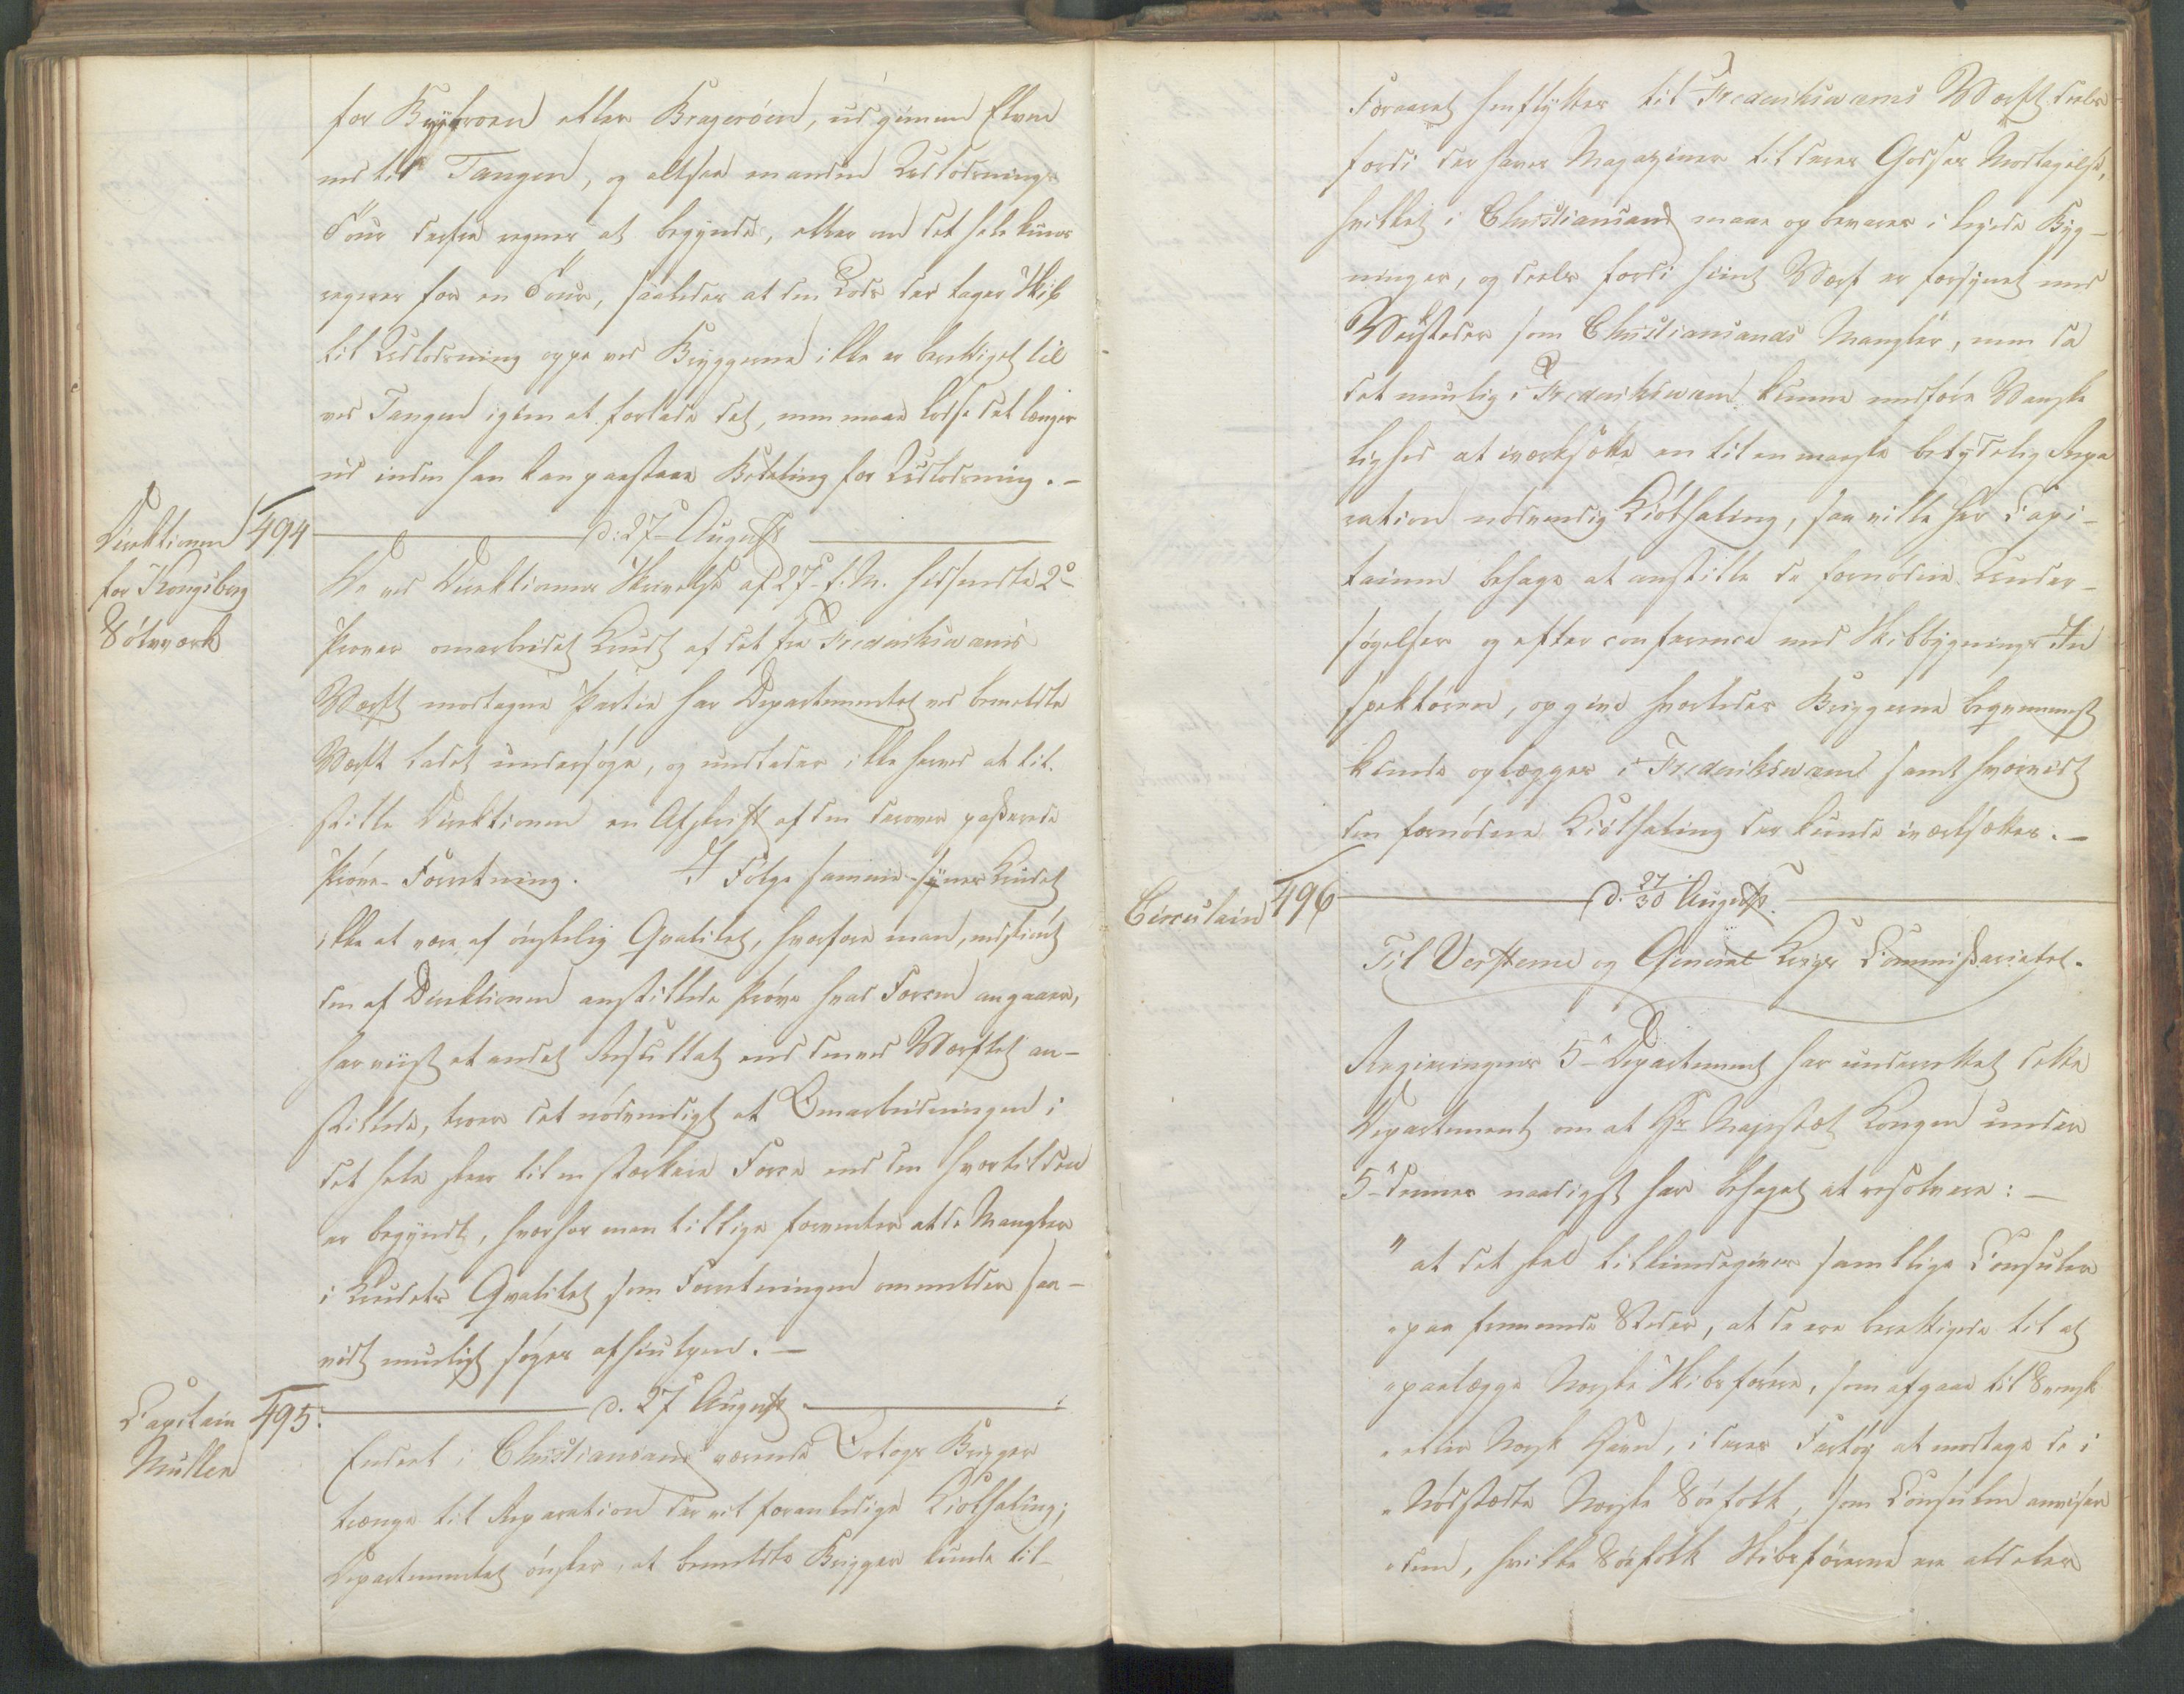 for Bryghroen eller Brageröen, ud gjennem Elven
ned til Tangen, og altsaa en anden Udlodsnings
Tour derfra regnes at begynde, eller om det hele kuns
regnes for en Tour, saaledes at den Lods der tager Skib
til Udlodsning oppe ved Bryggerne ikke er berettiget til
ved Tangen igjen at forlade det, men maae lodse det længer
ud inden han kan paastaae Betaling for Udlodsning. -
Direktionen 494 d: 27 August
for Kongsberg
Sölvværk
De ved Direktionens Skrivelse af 27 f. M. hidsendte 2
Prøver omarbeidet Krudt af det fra Frederiksværns
Værft modtagne Partie har Departementet ved bemeldte
Værft ladet undersøge, og undlader ikke herved at til-
stille Direktionen en Afskrift af den derover passerede
Prøve-Forretning. I Følge samme synes Krudtet
ikke at være af ønskelig Qvalitet, hvorfore man, uagtet
den af Direktionen anstillede Prøve hvad Forcen angaaer,
har viist et andet Resultat end den ved Værftet an-
stillede, troer det nødvendigt at Omarbeidningen i
det hele skeer til en stærkere Force end den hvortil den
er begyndt, hvorhos man tillige forventer at de Mangler
i Krudets Qvalitet som Forretningen ommelder saa-
vidt mueligt søges afhiulpen. -
Capitain 495. d. 27 August
Müller
Endeel i Christiansand værende Orlogs Brigger
trænge til Reparation der vil foranledige Kiølhaling;
Departementet ønsker, at bemeldte Brigger kunde til
Foraaret henflyttes til Frederiksværns Værft deels
fordi der haves Magaziner til deres Godses Modtagelse,
hvilket i Christiansand maae opbevares i leiede Byg-
ninger, og deels fordi hiint Værft er forsynet med
Værksteder som Christiansands Mangler, men da
det muelig i Frederiksværn kunne medføre Vanske
lighed at iværksætte en til en maaske betydelig Repa
ration nødvendig Kiølhaling, saa ville Hr Capi-
tainen behage at anstille de fornødne Under-
søgelser og efter conference med Skibbygnings In
spektøren, opgive hvorledes Briggerne beqvemmest
kunde oplægges i Frederiksværn samt hvorvidt
den fornødne Kiølhaling der kunde iværksættes. -
Circulair 496 d. 27/30 August.
Til Verfterne og General Krigs Commissariatet.
Regjeringens 5 Departement har underrettet dette
Departement om at Hs Majestæt Kongen under
5 dennes naadigst har behaget at resolvere: -
"at det skal tilkiendegives samtlige Consuler
"paa fremmede Steder, at de ere berettigede til at
"paalægge Norske Skibsførere, som afgaae til Svensk
"eller Norsk Havn, i deres Fartøy at modtage de i
"Nødstædte Norske Søefolk, som Consulen anviser
"dem, hvilke Søefolk Skibsførerne ere aldeles